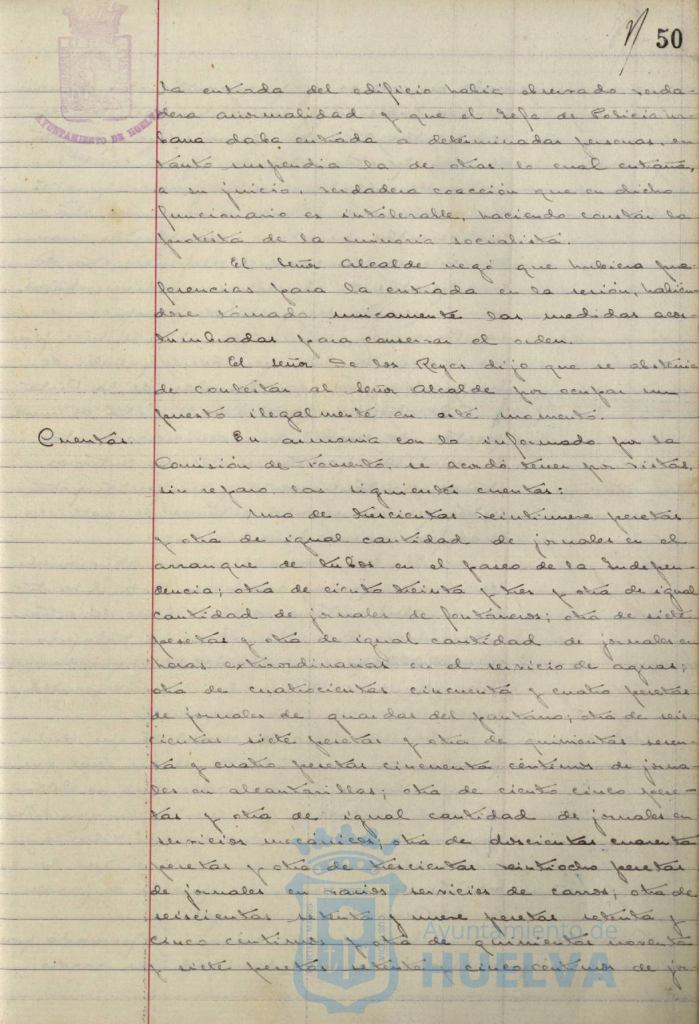 50
AYUNTAMIENTO DE HUELVA
la entrada del edificio había observado verda-
dera anormalidad y que el Jefe de Policia ur-
bana daba entrada a determinadas personas, en
tanto suspendía la de otras, lo cual entraña,
a su juicio, verdadera coacción que en dicho
funcionario es intolerable, haciendo constar la
protesta de la minoría socialista.
El Señor Alcalde negó que hubiera pre-
ferencias para la entrada en la sesión, habién-
dose tomado unicamente las medidas acos-
tumbradas para conservar el orden.
El señor De los Reyes dijo que se abstenía
de contestar al Señor Alcalde por ocupar un
puesto ilegalmente en este momento.
Cuentas.
En armonía con lo informado por la
Comisión de Fomento, se acordó tener por vistas,
sin reparo, las siguientes cuentas:
Una de trescientas veintinueve pesetas
y otra de igual cantidad de jornales en el
arranque de tubos en el paseo de la Indepen-
dencia; otra de ciento treinta y tres y otra de igual
cantidad de jornales de fontaneros; otra de siete
pesetas y otra de igual cantidad de jornales en
horas extraordinarias en el servicio de aguas;
otra de cuatrocientas cincuenta y cuatro pesetas
de jornales de guardas del pantano; otra de seis-
cientas siete pesetas y otra de quinientas sesen-
ta y cuatro pesetas cincuenta céntimos de jorna-
les en alcantarillas; otra de ciento cinco pese-
tas y otra de igual cantidad de jornales en
servicios mecánicos; otra de doscientas cuarenta
pesetas y otra de trescientas veintiocho pesetas
de jornales en varios servicios de carros; otra de
seiscientas setenta y nueve pesetas setenta y
cinco céntimos y otra de quinientas noventa
y siete pesetas setenta y cinco céntimos de jor
Ayuntamiento de
HUELVA